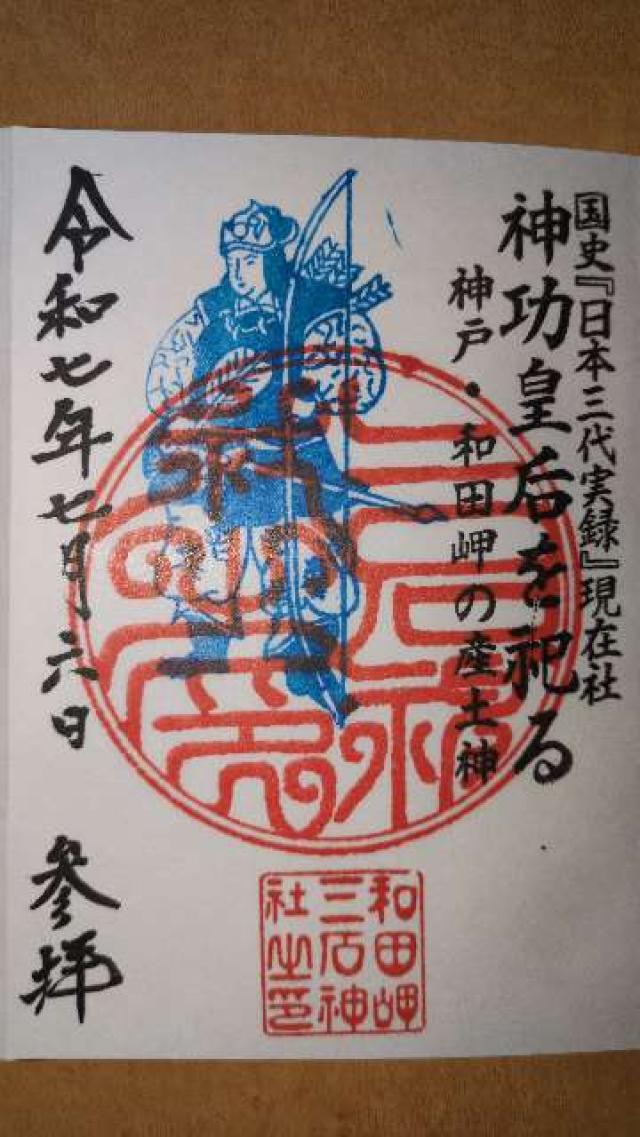 国史『日本三代実録』現在社
神功皇后を祀る
神戸・和田岬の産土神
令和七年七月六日 参拝
和田岬
三石神
社之印